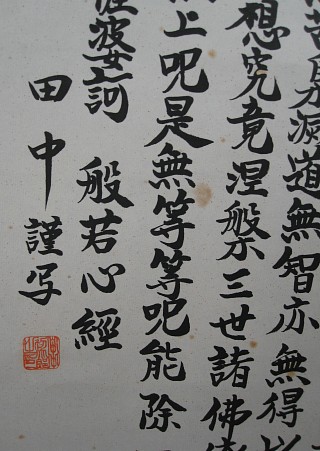 苦集滅道無智亦無得以
想究竟涅槃三世諸佛依
上呪是無等等呪能除
婆訶 般若心經
田中謹写